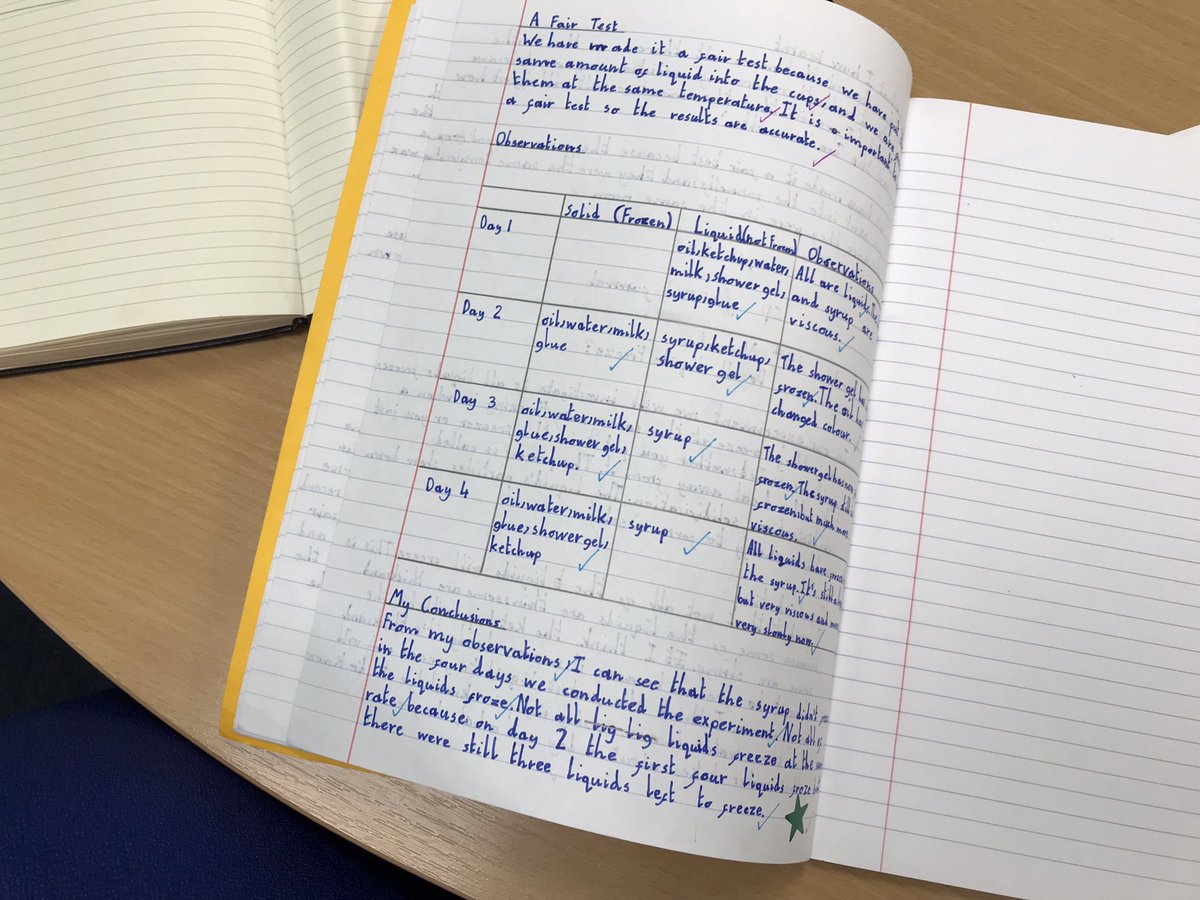 A Fair Test
We have made it a fair test because we have put
same amount of liquid into the cups, and we are
them at the same temperature. It is important
a fair test so the results are accurate.
Observations
Solid (Frozen) Liquid (not Frozen) Observations
Day 1
oil, ketchup, water,
milk, shower gel,
syrup, glue
All are liquids.
and syrup are
viscous.
Day 2
oil, water, milk,
glue
syrup, ketchup,
shower gel
The shower gel
frozen. The oil has
changed colour.
Day 3
oil, water, milk,
glue, shower gel,
ketchup.
syrup
The shower gel has
frozen. The syrup
frozen, but much more
viscous.
Day 4
oil, water, milk,
glue, shower gel,
ketchup
syrup
All liquids have
the syrup. It's still
but very viscous and
very slowly now.
My Conclusions
From my observations, I can see that the syrup didn't
in the four days we conducted the experiment. Not all
the liquids froze. Not all lig lig liquids freeze at the
rate, because on day 2 the first four liquids froze
there were still three liquids left to freeze.